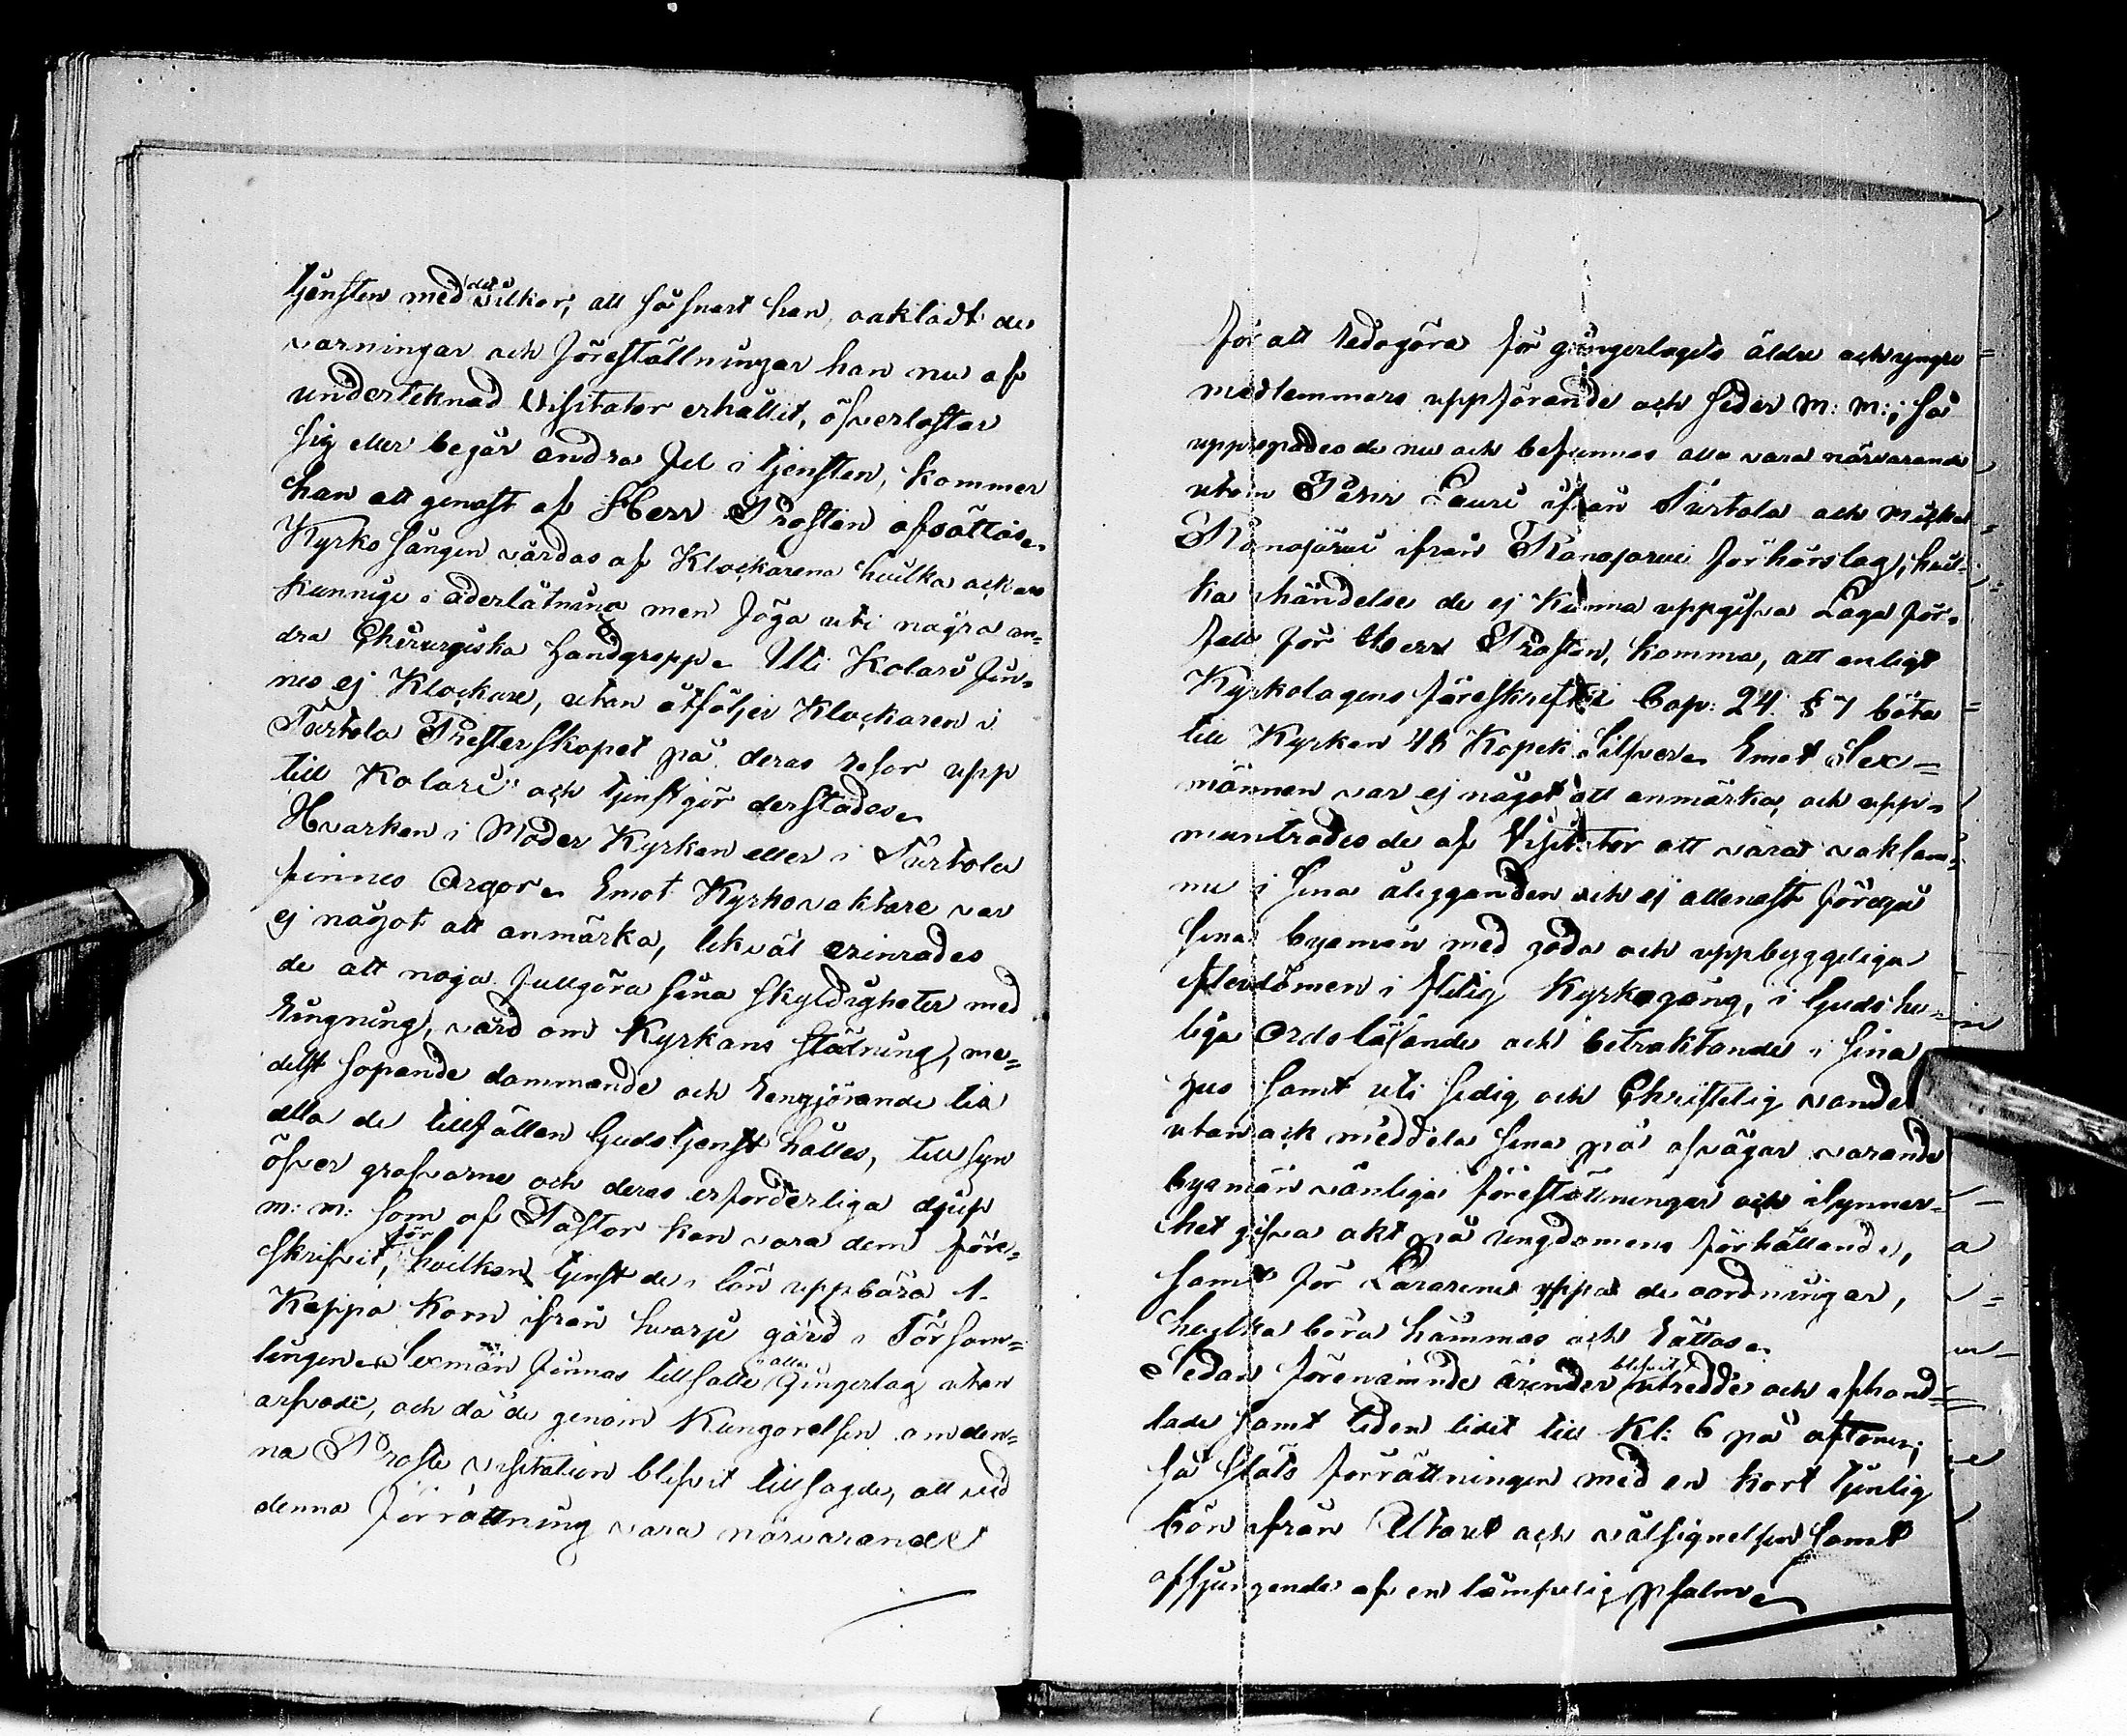 tjensten med det vilkor, att så snart han, oaktadt de
varningar och föreställningar han nu af
underteknad Visitator erhållit, öfverlastar
sig eller begår andra fel i tjensten, kommer
han att genast af Herr Prosten afsättas.
Kyrko sången vårdas af Klockarena hvilka ock äro
kunnige i åderlåtning men föga uti några an=
dra Chirurgiska Handgrepp. Uti Kolari fin=
nes ej Klockare, utan åtföljer Klockaren i
Turtola Presterskapet på deras resor upp
till Kolari och tjenstgör derstädes.
Hvarken i Moder Kyrkan eller i Turtola
finnes Orgor. Emot Kyrkovaktare var
ej något att anmärka, likväl erinrades
de att noga fullgöra sina skyldigheter med
Ringning, vård om Kyrkans städning, me=
delst sopande dammande och rengörande till
alla de tillfällen Gudstjenst hålles, tillsyn
öfver grafvarne och deras erforderliga djup
m: m: som af Pastor kan vara dem före=
skrifvit, för hvilken tjenst de i lön uppbära 1.
Kappa Korn ifrån hvarje gård i Försam=
lingen. Sexmän finnas tillsatte i alla Gingerlag utan
arfvode, och då de genom Kungörelsen om den=
na Proste visitation blifvit tillsagde, att vid
denna förrättning vara närvarande
för att redogöra för gingerlagets äldre och yngre
medlemmars uppförande och seder m: m:; så
uppropades de nu och befunnos alla vara närvarande
utom Pehr Lauri ifrån Turtola och Mickel
Ranojärvi ifrån Ranojärvi förhörslag, hvil=
ka i händelse de ej kunna uppgifva Laga för=
fall för Herr Prosten, komma, att enligt
Kyrkolagens föreskrift i Cap: 24 § 7 böta
till Kyrkan 48 Kopek Silfver. Emot Sex=
männen var ej något att anmärka, och upp=
muntrades de af Visitator att vara vaksam=
me i sina åligganden och ej allenast föregå
sina byamän med goda och uppbyggeliga
efterdömen i flitig Kyrkogång, i Guds he=
liga Ords läsande och betraktande i sina
hus samt uti sedig och Christelig vandel
utan ock meddela sina på afvägar varande
byamän vänliga föreställningar och i synner=
het gifva akt på ungdomens förhållande,
samt för Lärarena yppa de oordningar,
hvilka böra hämmas och rättas.
Sedan förenämnde ärender blifvit utredde och afhand=
lade samt tiden lidit till Kl: 6 på aftonen;
så slöts förrättningen med en kort tjenlig
bön ifrån Altaret och välsignelsen samt
afsjungande af en lämpelig psalm.